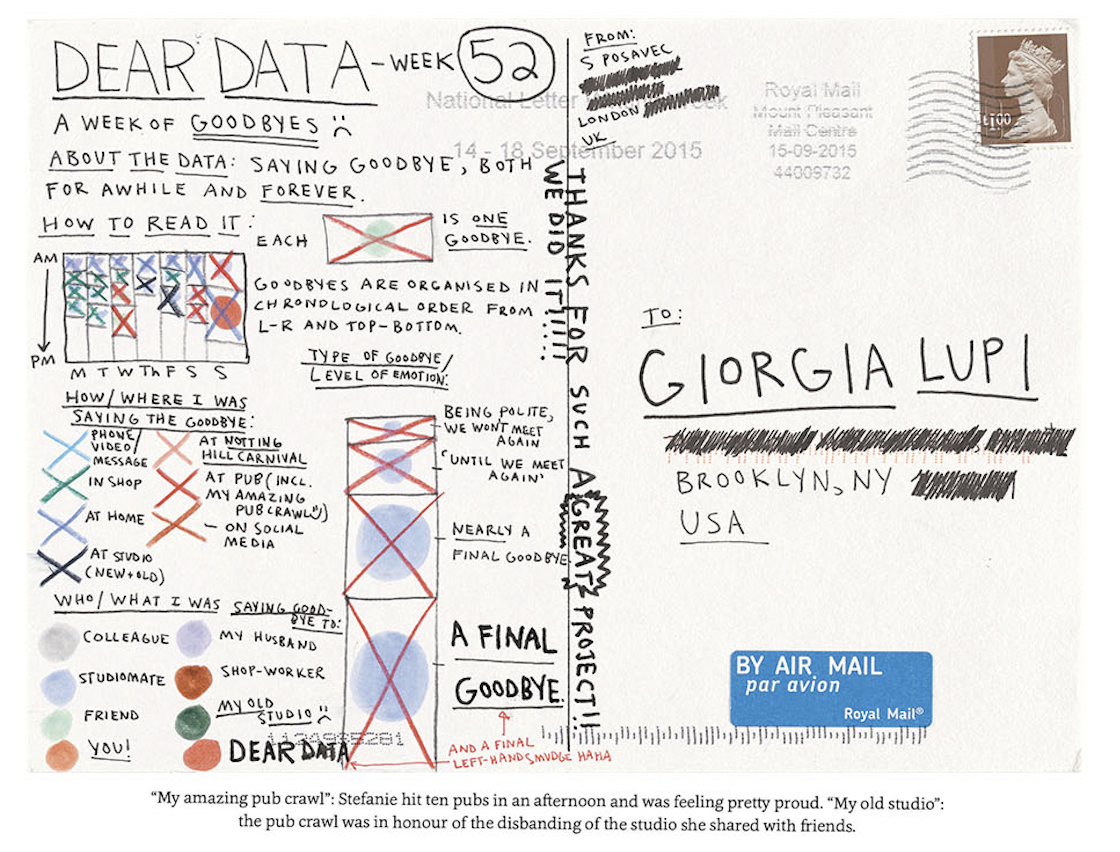 DEAR DATA - WEEK 52
A WEEK OF GOODBYES
ABOUT THE DATA: SAYING GOODBYE, BOTH
FOR AWHILE AND FOREVER.
HOW TO READ IT:
EACH
IS ONE
GOODBYE.
AM
PM
M T W Th F S S
GOODBYES ARE ORGANISED IN
CHRONOLOGICAL ORDER FROM
L-R AND TOP-BOTTOM.
HOW/WHERE I WAS
SAYING THE GOODBYE:
PHONE/
VIDEO/
MESSAGE
IN SHOP
AT HOME
AT STUDIO
(NEW+OLD)
AT NOTTING
HILL CARNIVAL
AT PUB (INCL.
MY AMAZING
PUB CRAWL)
- ON SOCIAL
MEDIA
WHO/WHAT I WAS SAYING GOOD-
BYE TO:
COLLEAGUE
STUDIOMATE
FRIEND
YOU!
MY HUSBAND
SHOP-WORKER
MY OLD
STUDIO
DEAR DATA
TYPE OF GOODBYE/
LEVEL OF EMOTION:
BEING POLITE,
WE WONT MEET
AGAIN
'UNTIL WE MEET
AGAIN'
NEARLY A
FINAL GOODBYE
A FINAL
GOODBYE.
AND A FINAL
LEFT-HAND SMUDGE HAHA
THANKS FOR SUCH A GREAT PROJECT!!
WE DID IT!!!!
FROM:
S POSAVEC
LONDON
UK
National Letter
14 - 18 September 2015
Royal Mail
Mount Pleasant
Mail Centre
15-09-2015
44009732
£1.00
TO:
GIORGIA LUPI
BROOKLYN, NY
USA
BY AIR MAIL
par avion
Royal Mail®
“My amazing pub crawl”: Stefanie hit ten pubs in an afternoon and was feeling pretty proud. “My old studio”:
the pub crawl was in honour of the disbanding of the studio she shared with friends.